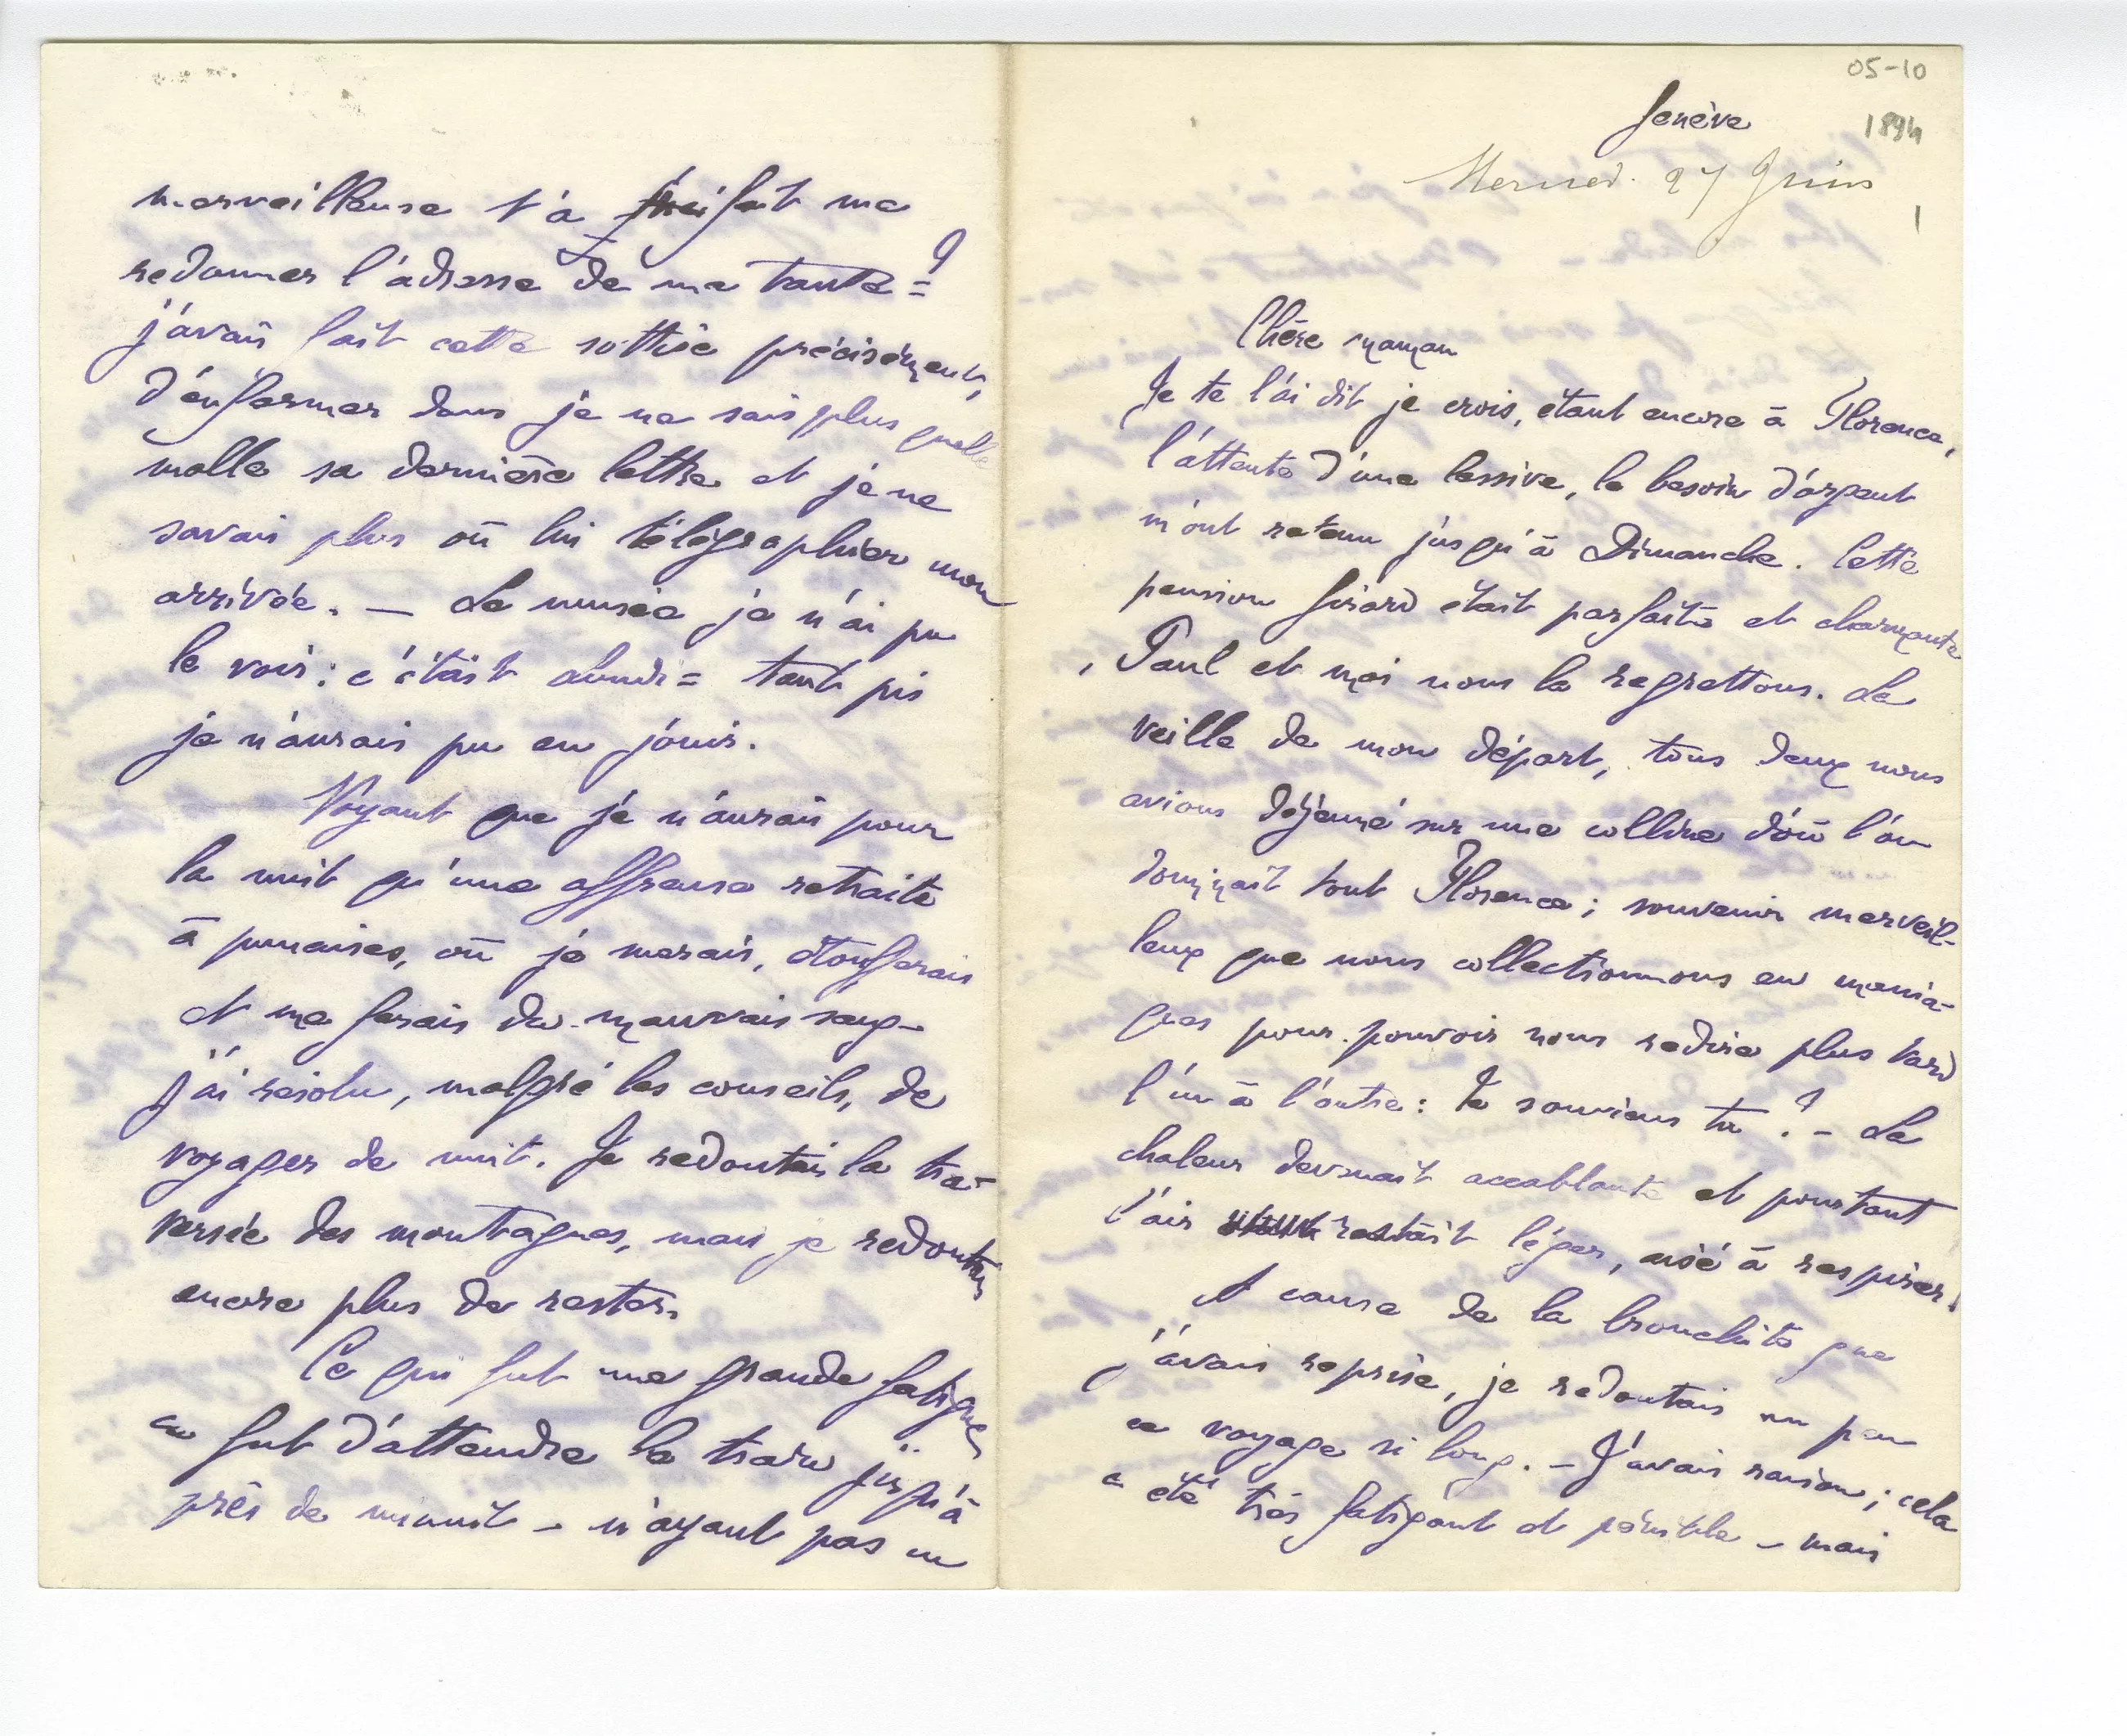 05-10
Genève
1894
Mercred. 27 Juin
1
Chère maman
Je te l'ai dit je crois, étant encore à Florence,
l'attente d'une lessive, le besoin d'argent
m'ont retenu jusqu'à Dimanche. Cette
pension Girard était parfaite et charmante
, Paul et moi nous la regrettons. La
veille de mon départ, tous deux nous
avions déjeuné sur une colline d'où l'on
dominait tout Florence ; souvenir merveil-
leux que nous collectionnons en mania-
ques pour pouvoir nous redire plus tard
l'un à l'autre : te souviens tu ? – La
chaleur devenait accablante et pourtant
l'air restait léger, aisé à respirer.
A cause de la bronchite que
j'avais reprise, je redoutais un peu
ce voyage si long. – J'avais raison ; cela
a été très fatigant et pénible – mais
merveilleuse t'a fait me
redonner l'adresse de ma tante = ?
j'avais fait cette sottise précisément,
d'enfermer dans je ne sais plus quelle
malle sa dernière lettre et je ne
savais plus où lui télégraphier mon
arrivée. – Le musée je n'ai pu
le voir : c'était lundi = tant pis
je n'aurais pu en jouir.
Voyant que je n'aurais pour
la nuit qu'une affreuse retraite
à punaises, où je merais, étoufferais
et me ferais du mauvais sang –
j'ai résolu, malgré les conseils, de
voyager de nuit. Je redoutais la tra-
versée des montagnes, mais je redoutais
encore plus de rester.
Ce qui fut une grande fatigue
ce fut d'attendre le train jusqu'à
près de minuit – n'ayant pas un